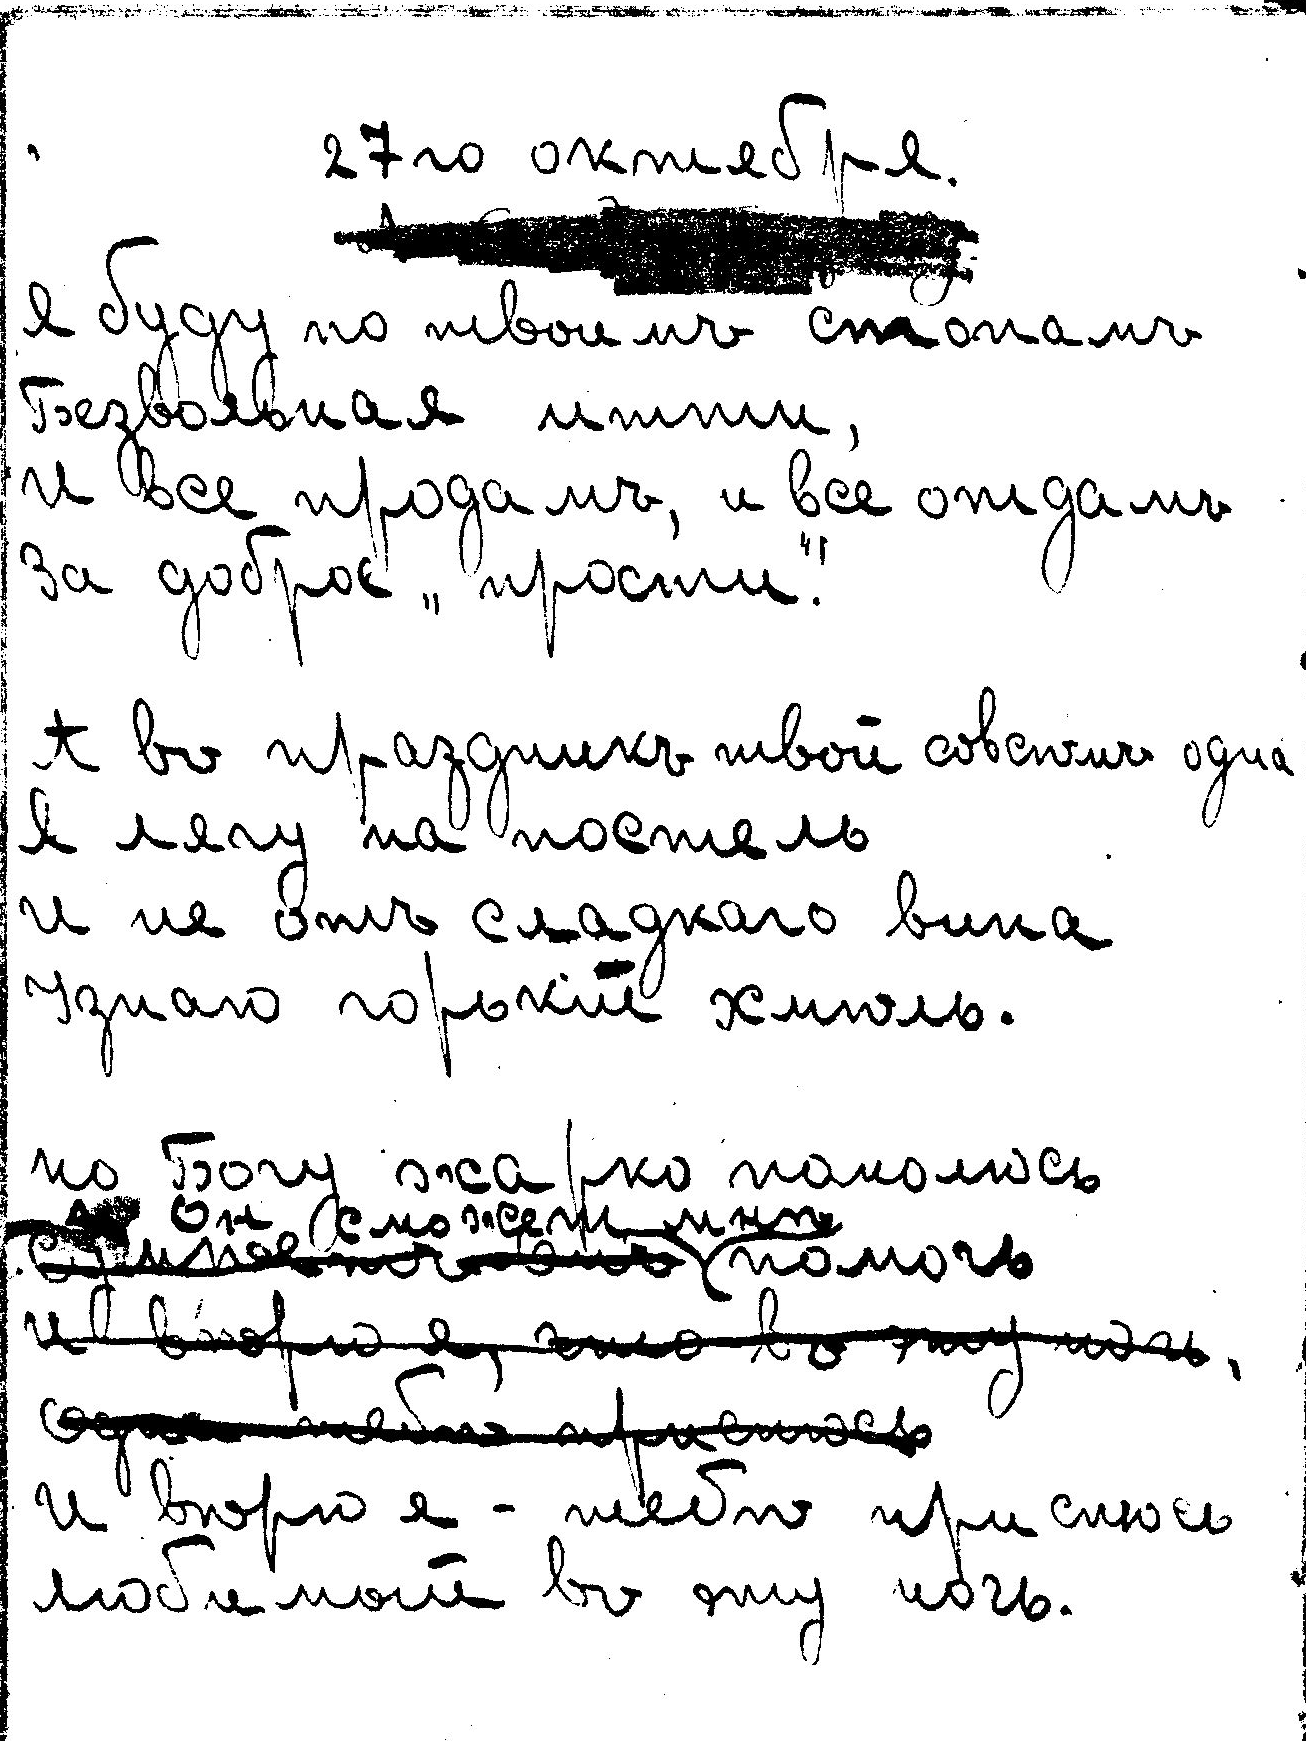 27го октября.
Я буду по твоимъ стопамъ
Безвольная итти,
И все продамъ, и все отдамъ
За доброе „прости“!
А въ праздникъ твой совсѣмъ одна
Я лягу на постель
И не отъ сладкаго вина
Узнаю горькій хмѣль.
Но Богу жарко помолюсь
Он сможетъ мнѣ
помочь
И вѣрю я, что въ эту ночь,
одна тебѣ приснюсь
И вѣрю я - тебѣ приснюсь
любимой въ эту ночь.